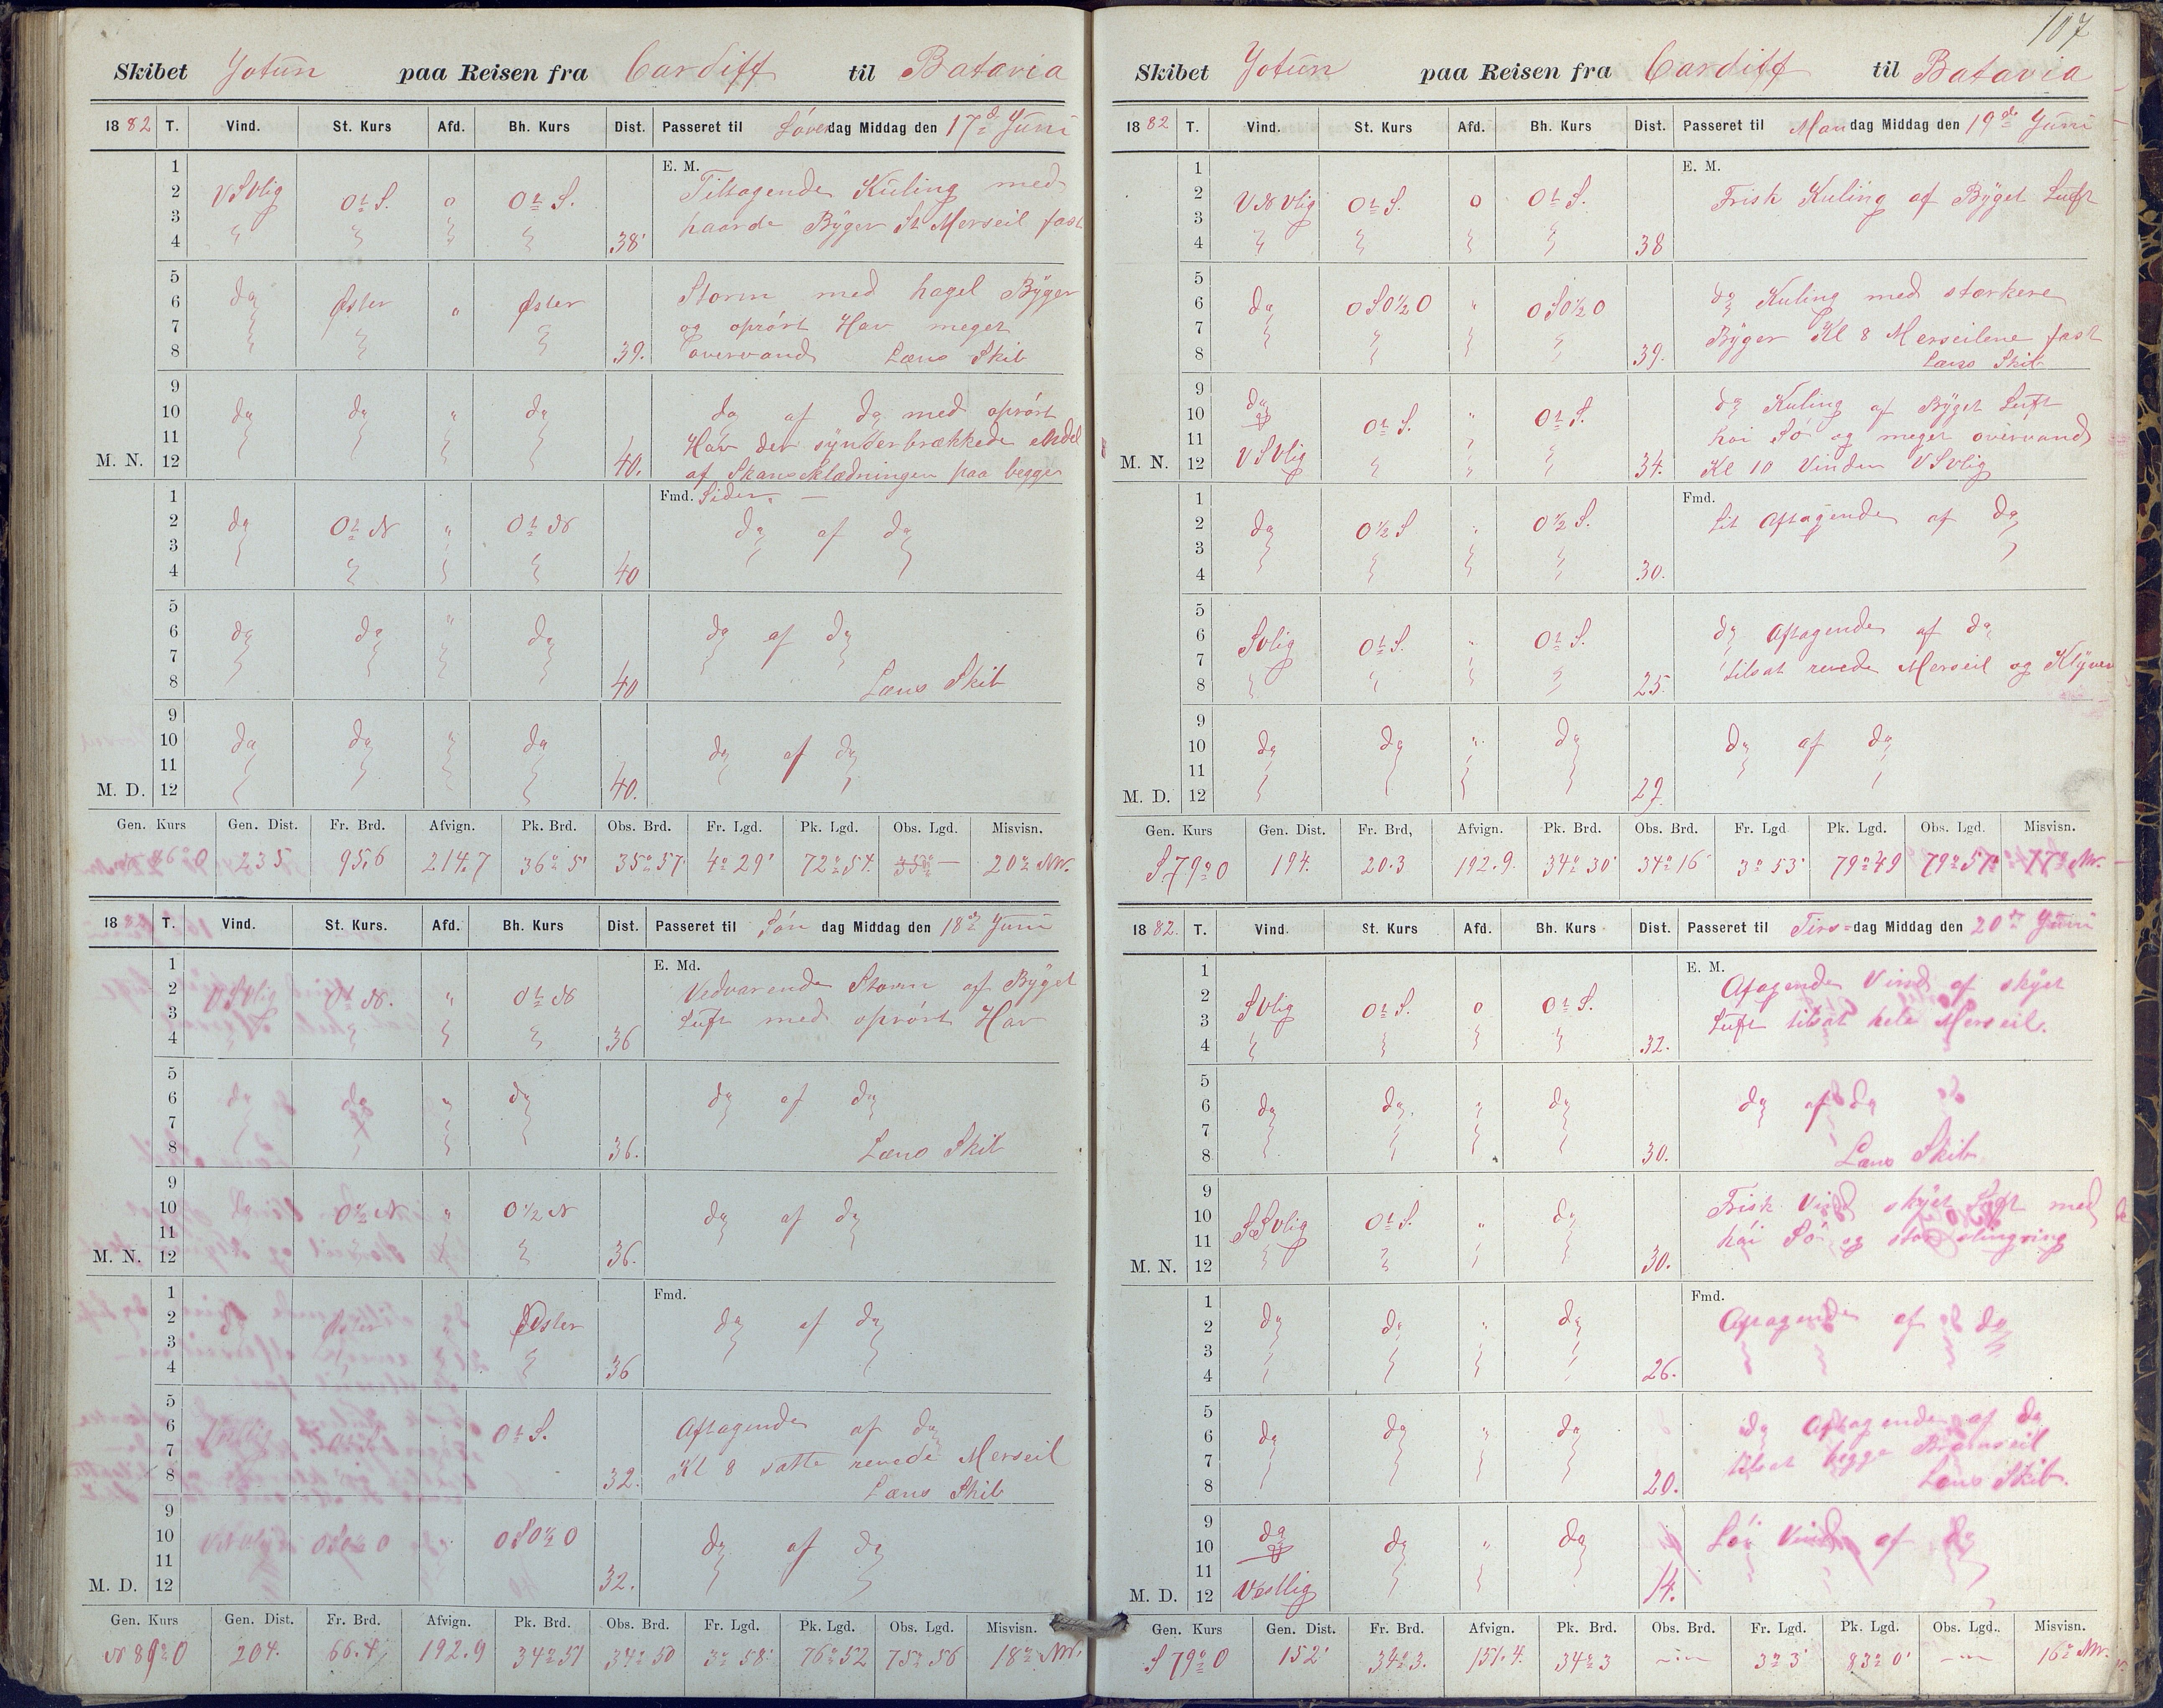 107
Skibet Jotun paa Reisen fra Cardiff til Batavia
1882 T. Vind. St. Kurs Afd. Bh. Kurs Dist. Passeret til Løverdag Middag den 17d Juni
1 E. M.
2 VSVlig O½S. o O½S. Tiltagende Kuling med
3 haarde Byger St Merseil fast
4 38'
5
6 do Øster o Øster Storm med hagel Byger
7 og oprørt Hav meget
8 39. overvand Læns Skib
9
10 do do " do do af do med oprørt
11 Hav der synderbrækkede endel
M. N. 12 40. af Skanseklædningen paa begge
1 Fmd. Sider. —
2 do O½N " O½N do af do
3
4 40
5
6 do do " do do af do
7
8 40 Læns Skib
9
10 do do " do do af do
11
M. D. 12 40.
Gen. Kurs Gen. Dist. Fr. Brd. Afvign. Pk. Brd. Obs. Brd. Fr. Lgd. Pk. Lgd. Obs. Lgd. Misvisn.
86°O 235 95,6 214.7 36° 5' 35° 57' 4° 29' 72° 54. — 20° NW.
1882 T. Vind. St. Kurs. Afd. Bh. Kurs Dist. Passeret til Søn dag Middag den 18d Juni
1 E. Md.
2 VSVlig O½N. " O½N Vedvarende Storm af Byget
3 Luft med oprørt Hav
4 36
5
6 do do " do do af do
7
8 36. Læns Skib
9
10 O½N " O½N do af do
11
M. N. 12 36.
1 Fmd.
2 Øster " Øster do af do
3
4 36
5
6 O½S. Aftagende af do
7 Kl 8 satte revede Merseil
8 32. Læns Skib
9
10 VNVlig OSO½O OSO½O do af do
11
M. D. 12 32.
Gen. Kurs Gen. Dist. Fr. Brd. Afvign. Pk. Brd. Obs. Brd. Fr. Lgd. Pk. Lgd. Obs. Lgd. Misvisn.
N 89°O 204. 66.4 192.9 34° 51 34° 50 3° 58' 76° 52 75° 56 18° NW.
Skibet Jotun paa Reisen fra Cardiff til Batavia
1882 T. Vind. St. Kurs Afd. Bh. Kurs Dist. Passeret til Mandag Middag den 19de Juni
1 E. M.
2 VNVlig O½S. o O½S. Frisk Kuling af Byget Luft
3
4 38
5
6 do OSO½O " OSO½O do Kuling med stærkere
7 Byger Kl 8 Merseilene fast
8 39. Læns Skib
9
10 do O½S. " O½S. do Kuling af Byget Luft
11 høi Sø og meget overvand
M. N. 12 VSVlig 34. Kl 10 Vinden VSVlig
1 Fmd.
2 do O½S " O½S. Lit Aftagende af do
3
4 30.
5
6 SVlig O½S. " O½S. do Aftagende af do
7 tilsat revede Merseil og Klyver
8 25.
9
10 do do " do do af do
11
M. D. 12 27.
Gen. Kurs Gen. Dist. Fr. Brd, Afvign. Pk. Brd. Obs. Brd. Fr. Lgd Pk. Lgd. Obs. Lgd. Misvisn.
S.79°O 194. 20.3 192.9. 34° 30' 34° 16' 3° 53' 79° 49 79° 57' 17° NW.
1882. T. Vind. St. Kurs Afd. Bh. Kurs Dist. Passeret til Tirsdag Middag den 20de Juni
1 E. M.
2 SVlig O½S. o O½S. Aftagende Vind af skyet
3 Luft tilsat hele Merseil.
4 32.
5
6 do do. " do do af do
7
8 30. Læns Skib
9
10 SSVlig O½S. " do Frisk Vind skyet Luft med
11 høi Sø og stor slingring
M. N. 12 30.
1 Fmd.
2 do do " do Aftagende af do
3
4 26.
5
6 do do " do do Aftagende af do
7 tilsat begge Bramseil
8 20. Læns Skib.
9
10 do do " do Løi Vind af do
11
M. D. 12 Vestlig 14.
Gen. Kurs Gen. Dist. Fr. Brd. Afvign. Pk. Brd. Obs. Brd. Fr. Lgd. Pk. Lgd. Obs. Lgd.. Misvisn.
S 79°O 152' 34° 3. 151.4. 34° 3 — 3° 3' 83° 0' — 16° NW.